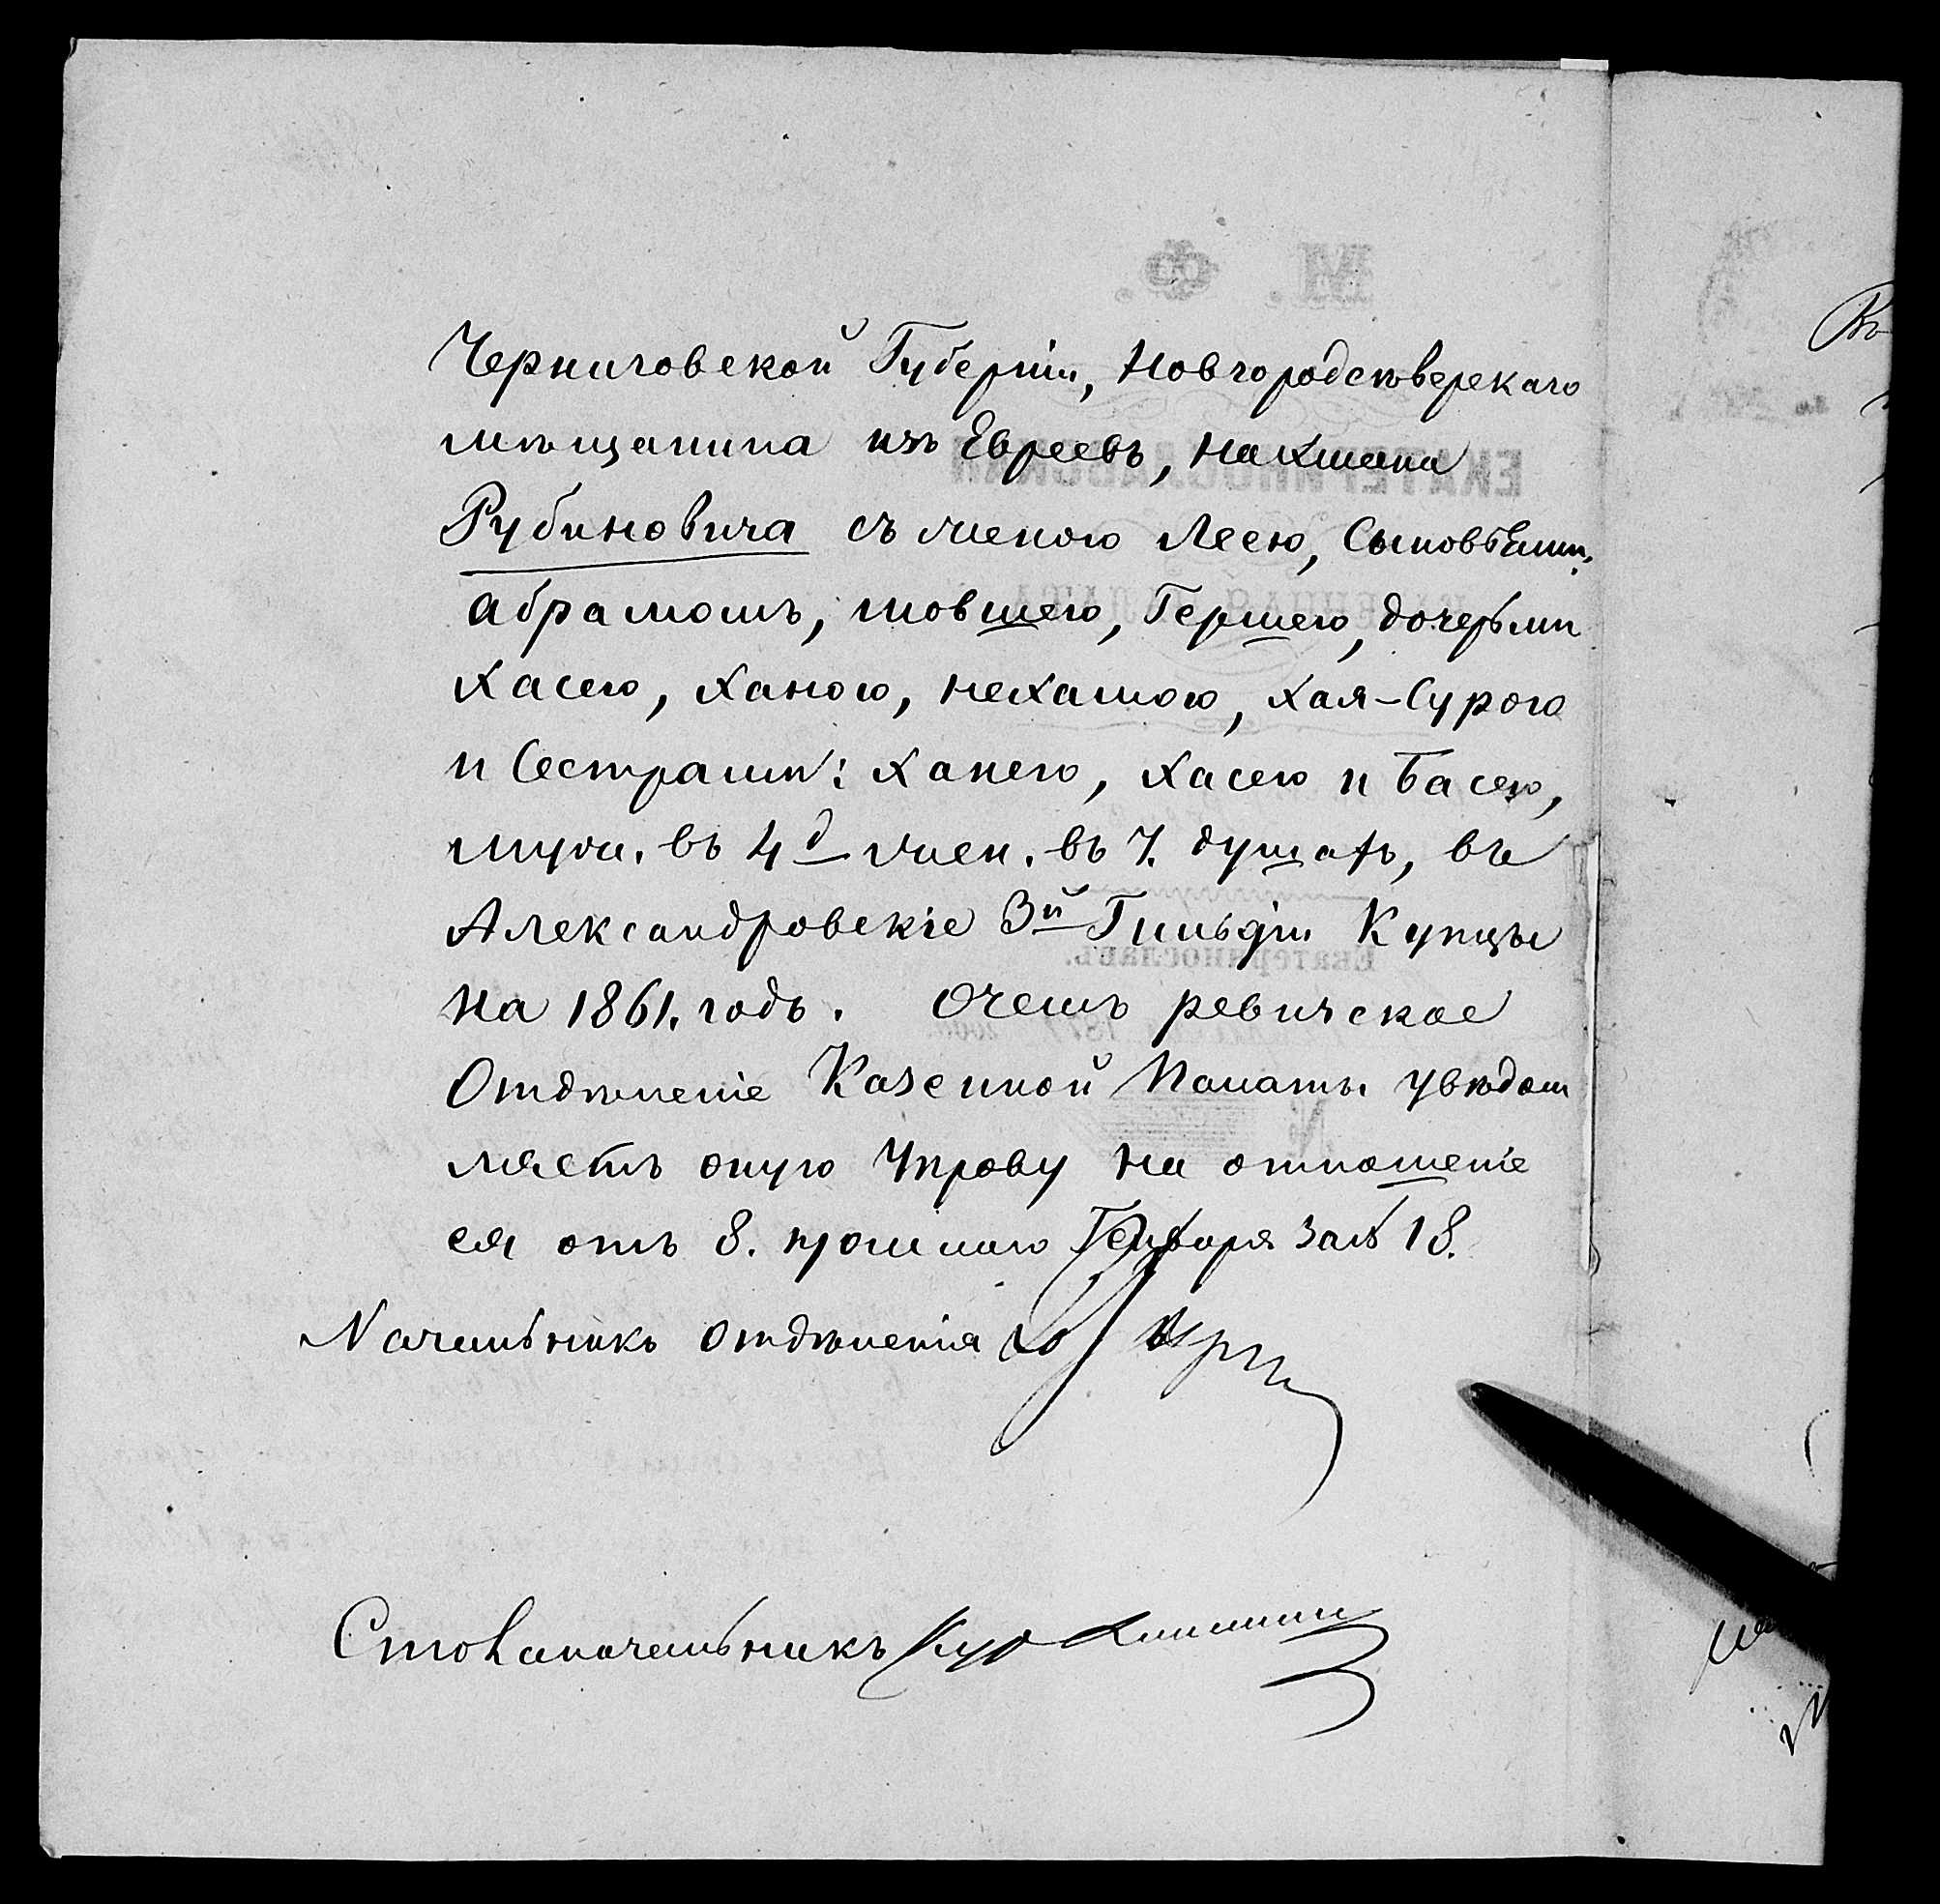 Черниговской Губерніи, Новгородсѣверскаго
мѣщанина изъ Евреевъ, Нахмана
Рубиновича съ женою Леею, Сыновьями.
Абрамомъ, Мовшею, Гершею, дочерьми
Хасею, Ханою, Нехамою, Хая-Сурою
и Сестрами: Ханею, Хасею и Басею,
муж. въ 4д жен. въ 7. душахъ, въ
Александровскіе 3й Гильдіи Купцы
на 1861. годъ. О чемъ ревизское
Отдѣленіе Казенной Палаты увѣдом
ляетъ оную Управу на отношеніе
ея отъ 8. прошлаго Генваря за № 18.
Начальникъ отдѣленія
Столоначальникъ
М. Ф.
ЕКАТЕРИНОСЛАВСКАЯ
КАЗЕННАЯ ПАЛАТА
Екатеринославъ.
№